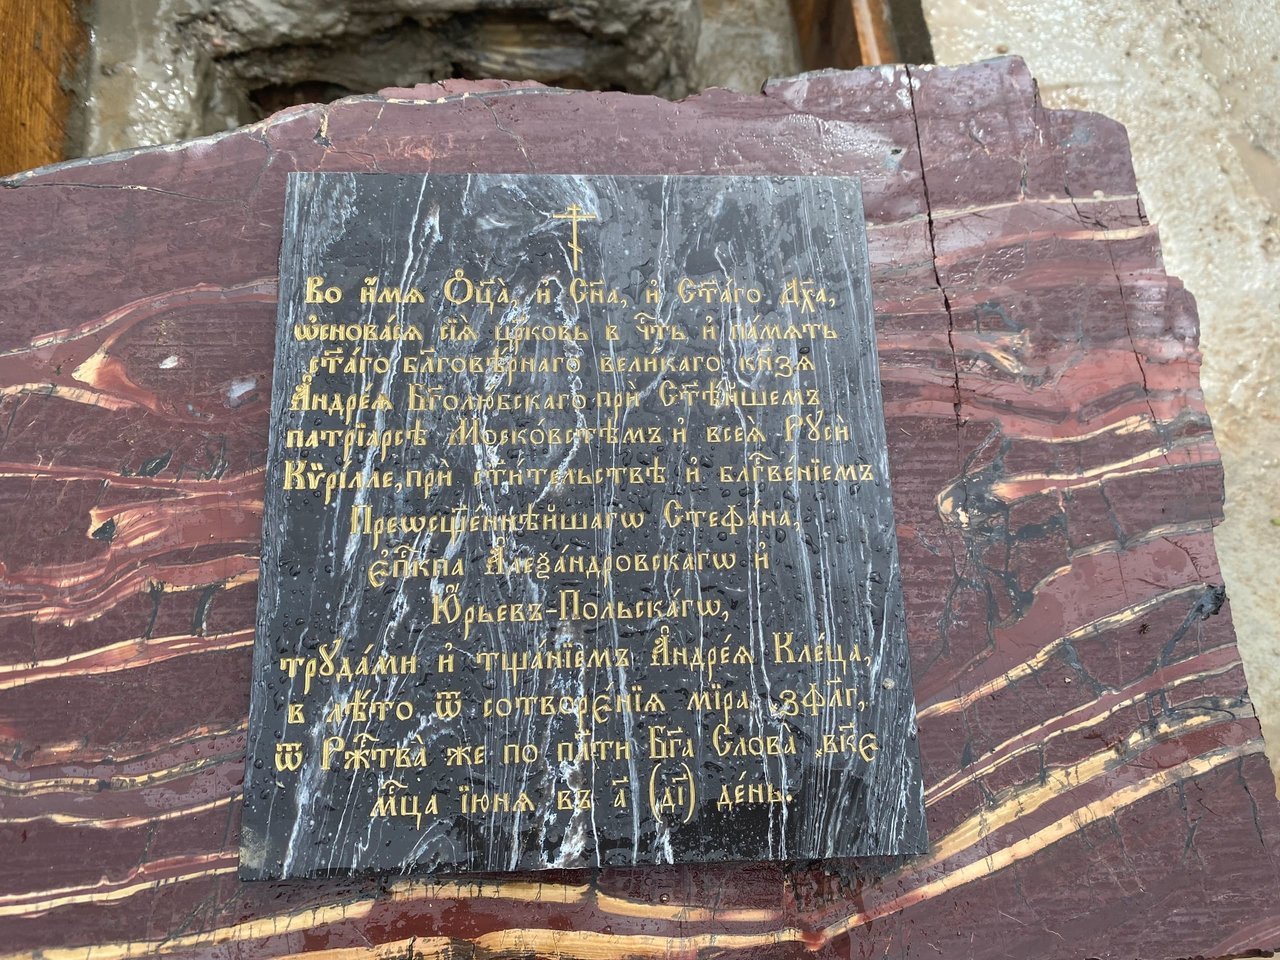 Во и҆́мѧ Ѻ҆ц҃а̀, и҆ Сн҃а, и҆ Ст҃а́гѡ Дх҃а,
ѡ҆снова́сѧ сїѧ̀ цр҃ковь в че́сть и҆ па́мѧть
ст҃а́го бл҃говѣ́рнаго вели́каго кн҃зѧ
А҆ндре́ѧ Бг҃олюбскаго прѝ Ст҃ѣ́йшемъ
патрїа́рсѣ Моско́встѣмъ и҆ всеѧ̀ Рꙋсѝ
Кѷрі́лле, прѝ ст҃и́тельствѣ и҆ блг҃ве́нїемъ
Преѡсщ҃е́ннѣйшагѡ Стефа́на,
є҆п҃кпа А҆леѯа́ндровскагѡ и҆
Ю҆́рьевъ-Польска́гѡ,
трꙋда́ми и҆ тща́нїемъ А҆ндре́ѧ Кле́ца,
в лѣ́то ѿ сотворе́нїѧ мі́ра ҂зфл҃г,
ѿ Рж҃тва̀ же по пл҃ти Бг҃а Сло́ва ҂вк҃є
мц҃а їю́нѧ въ а҃ (дї҃) де́нь.